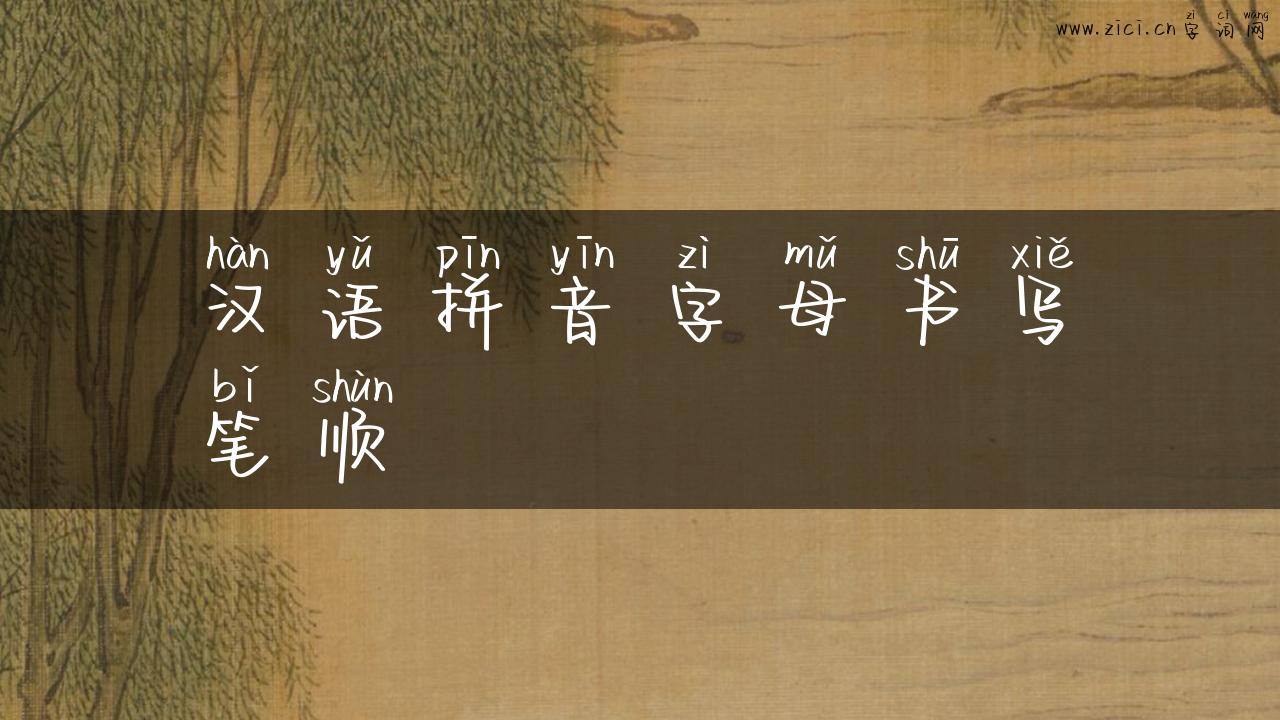 zì cí wǎng
www.zici.cn 字词网
hàn yǔ pīn yīn zì mǔ shū xiě
汉语拼音字母书写
bǐ shùn
笔顺